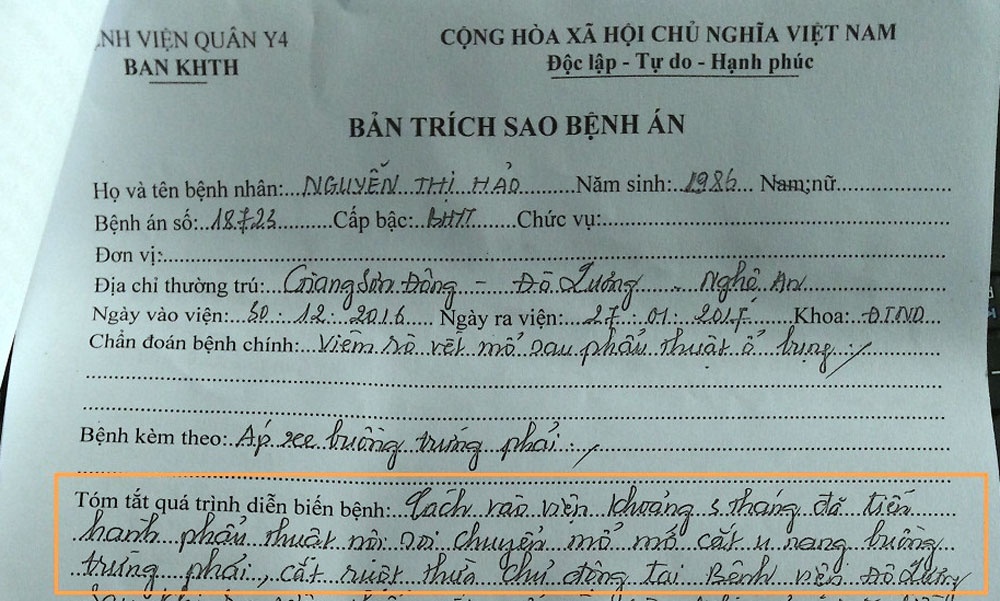 NH VIỆN QUÂN Y4
BAN KHTH
CỘNG HÒA XÃ HỘI CHỦ NGHĨA VIỆT NAM
Độc lập - Tự do - Hạnh phúc
BẢN TRÍCH SAO BỆNH ÁN
Họ và tên bệnh nhân:...NGUYỄN THỊ HẢO.........Năm sinh:..1986..Nam;nữ..................
Bệnh án số:..18723..........Cấp bậc:..BHYT......Chức vụ:..................
Đơn vị:..................
Địa chỉ thường trú:...Giang Sơn Đông - Đô Lương - Nghệ An
Ngày vào viện:.30.12.2016..Ngày ra viện:..27.01.2017..Khoa:.ĐTND
Chẩn đoán bệnh chính:..Viêm rò vết mổ sau phẩu thuật ổ bụng./
Bệnh kèm theo:..Áp xe buồng trứng phải./
Tóm tắt quá trình diễn biến bệnh:..Cách vào viện khoảng 5 tháng đã tiến
hành phẩu thuật nội soi chuyển mổ mở cắt u nang buồng
trứng phải, cắt ruột thừa chủ động tại Bệnh viện Đô Lương